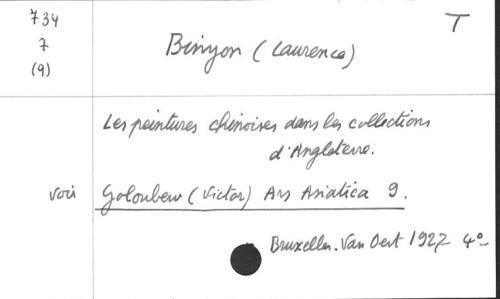 734
7
(9)
T
Binyon (Laurence)
Les peintures chinoises dans les collections
d'Angleterre.
voir Goloubew (Victor) Ars Asiatica 9.
Bruxelles. Van Oest 1927 4°